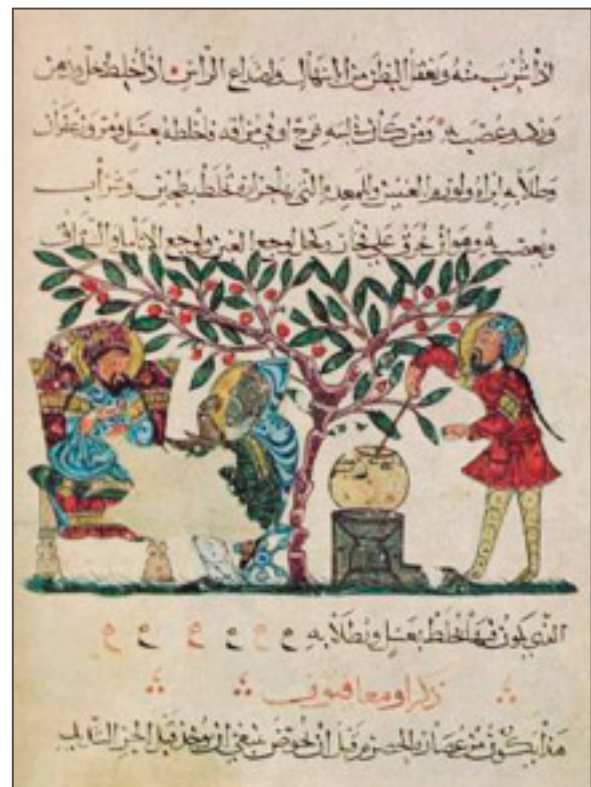 اذا شرب منه ويعقل البطن من الاسهال ولصداع الراس اذا خلط بخل ودهن
ورد وعصب به ومن كان به قرح او في مراقه فاخلطه بعسل ومر وزعفران
وطلا به ابراه ولورم العينين وللمعدة التي بها حرارة تخلط بطحين وشراب
ويعصب به وهو ان يحرق على فخار يكحل لوجع العين ولوجع
الذي يكون فيها يخلط بعسل ويطلا به و و و و و و
ذكر اومفاقيون
هذا يكون من عصارة الحصرم قبل ان يحوض ينبغي ان يوخذ قبل الحر الشديد